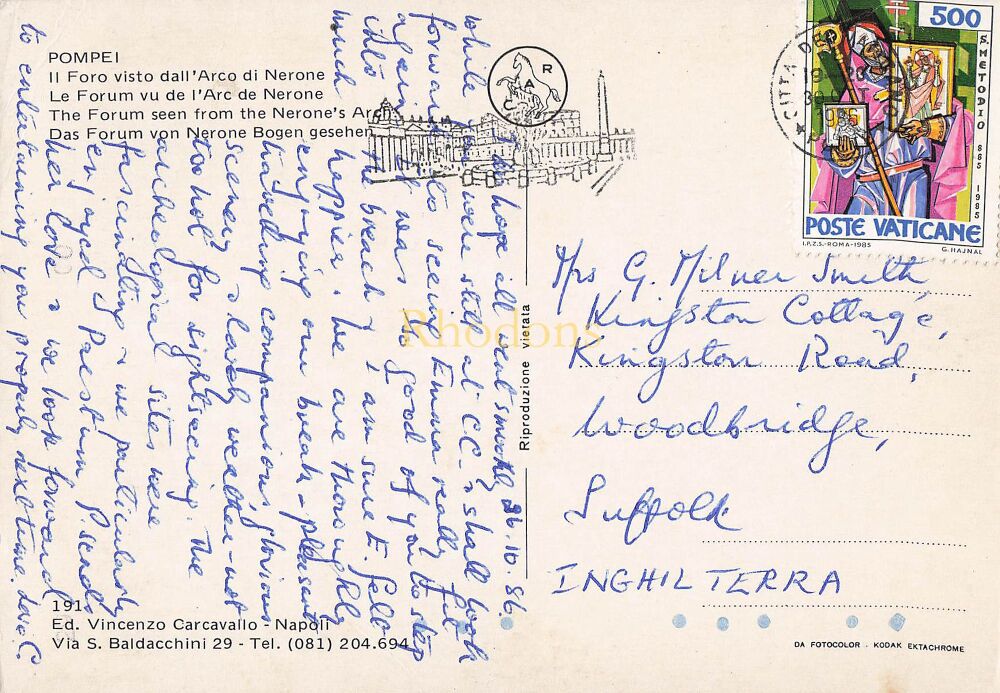 POMPEI
Il Foro visto dall'Arco di Nerone
Le Forum vu de l'Arc de Nerone
The Forum seen from the Nerone's Ar
Das Forum von Nerone Bogen gesehen
R
A
CITTA DE
500
S. METODIO 885 1985
POSTE VATICANE
I.P.Z.S.-ROMA-1985
G. HAJNAL
26.10.86.
I do hope all went smoothly
while you were still at CC - & shall look
forward to seeing Emma really fit
again. It was so good of you to step
into the breach & I am sure E. felt
much happier. We are thoroughly
enjoying our break - pleasant
travelling companions, glorious
scenery & lovely weather - not
too hot for sightseeing. The
archeological sites were
fascinating & we particularly
enjoyed Paestum. P. sends
her love & we look forward
to entertaining you properly next time. Love C.
Mrs G. Milner Smith,
Kingston Cottage,
Kingston Road,
Woodbridge,
Suffolk
INGHILTERRA
Rhodons
Riproduzione vietata
191
Ed. Vincenzo Carcavallo - Napoli
Via S. Baldacchini 29 - Tel. (081) 204.694
DA FOTOCOLOR - KODAK EKTACHROME